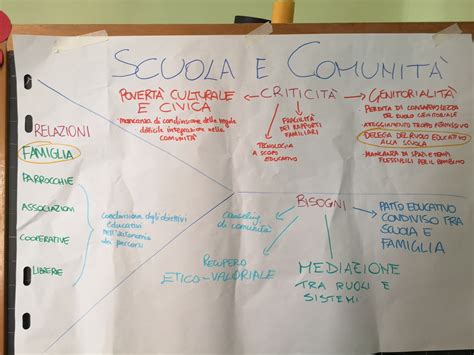 SCUOLA E COMUNITÀ
POVERTÀ CULTURALE
E CIVICA
mancanza di condivisione delle regole
difficile integrazione nella
COMUNITÀ
CRITICITÀ
FRAGILITÀ
DEI RAPPORTI
FAMILIARI
TECNOLOGIA
A SCOPO
EDUCATIVO
GENITORIALITÀ
PERDITA DI CONSAPEVOLEZZA
DEL RUOLO GENITORIALE
ATTEGGIAMENTO TROPPO PERMISSIVO
DELEGA DEL RUOLO EDUCATIVO
ALLA SCUOLA
MANCANZA DI SPAZI E TEMPI
FLESSIBILI PER IL BAMBINO
RELAZIONI
FAMIGLIA
PARROCCHIE
ASSOCIAZIONI
COOPERATIVE
LIBRERIE
Condivisione degli obiettivi
educativi
nell'autonomia
dei percorsi
BISOGNI
Counseling
di comunità
RECUPERO
ETICO-VALORIALE
MEDIAZIONE
TRA RUOLI E
SISTEMI
PATTO EDUCATIVO
CONDIVISO TRA
SCUOLA E
FAMIGLIA